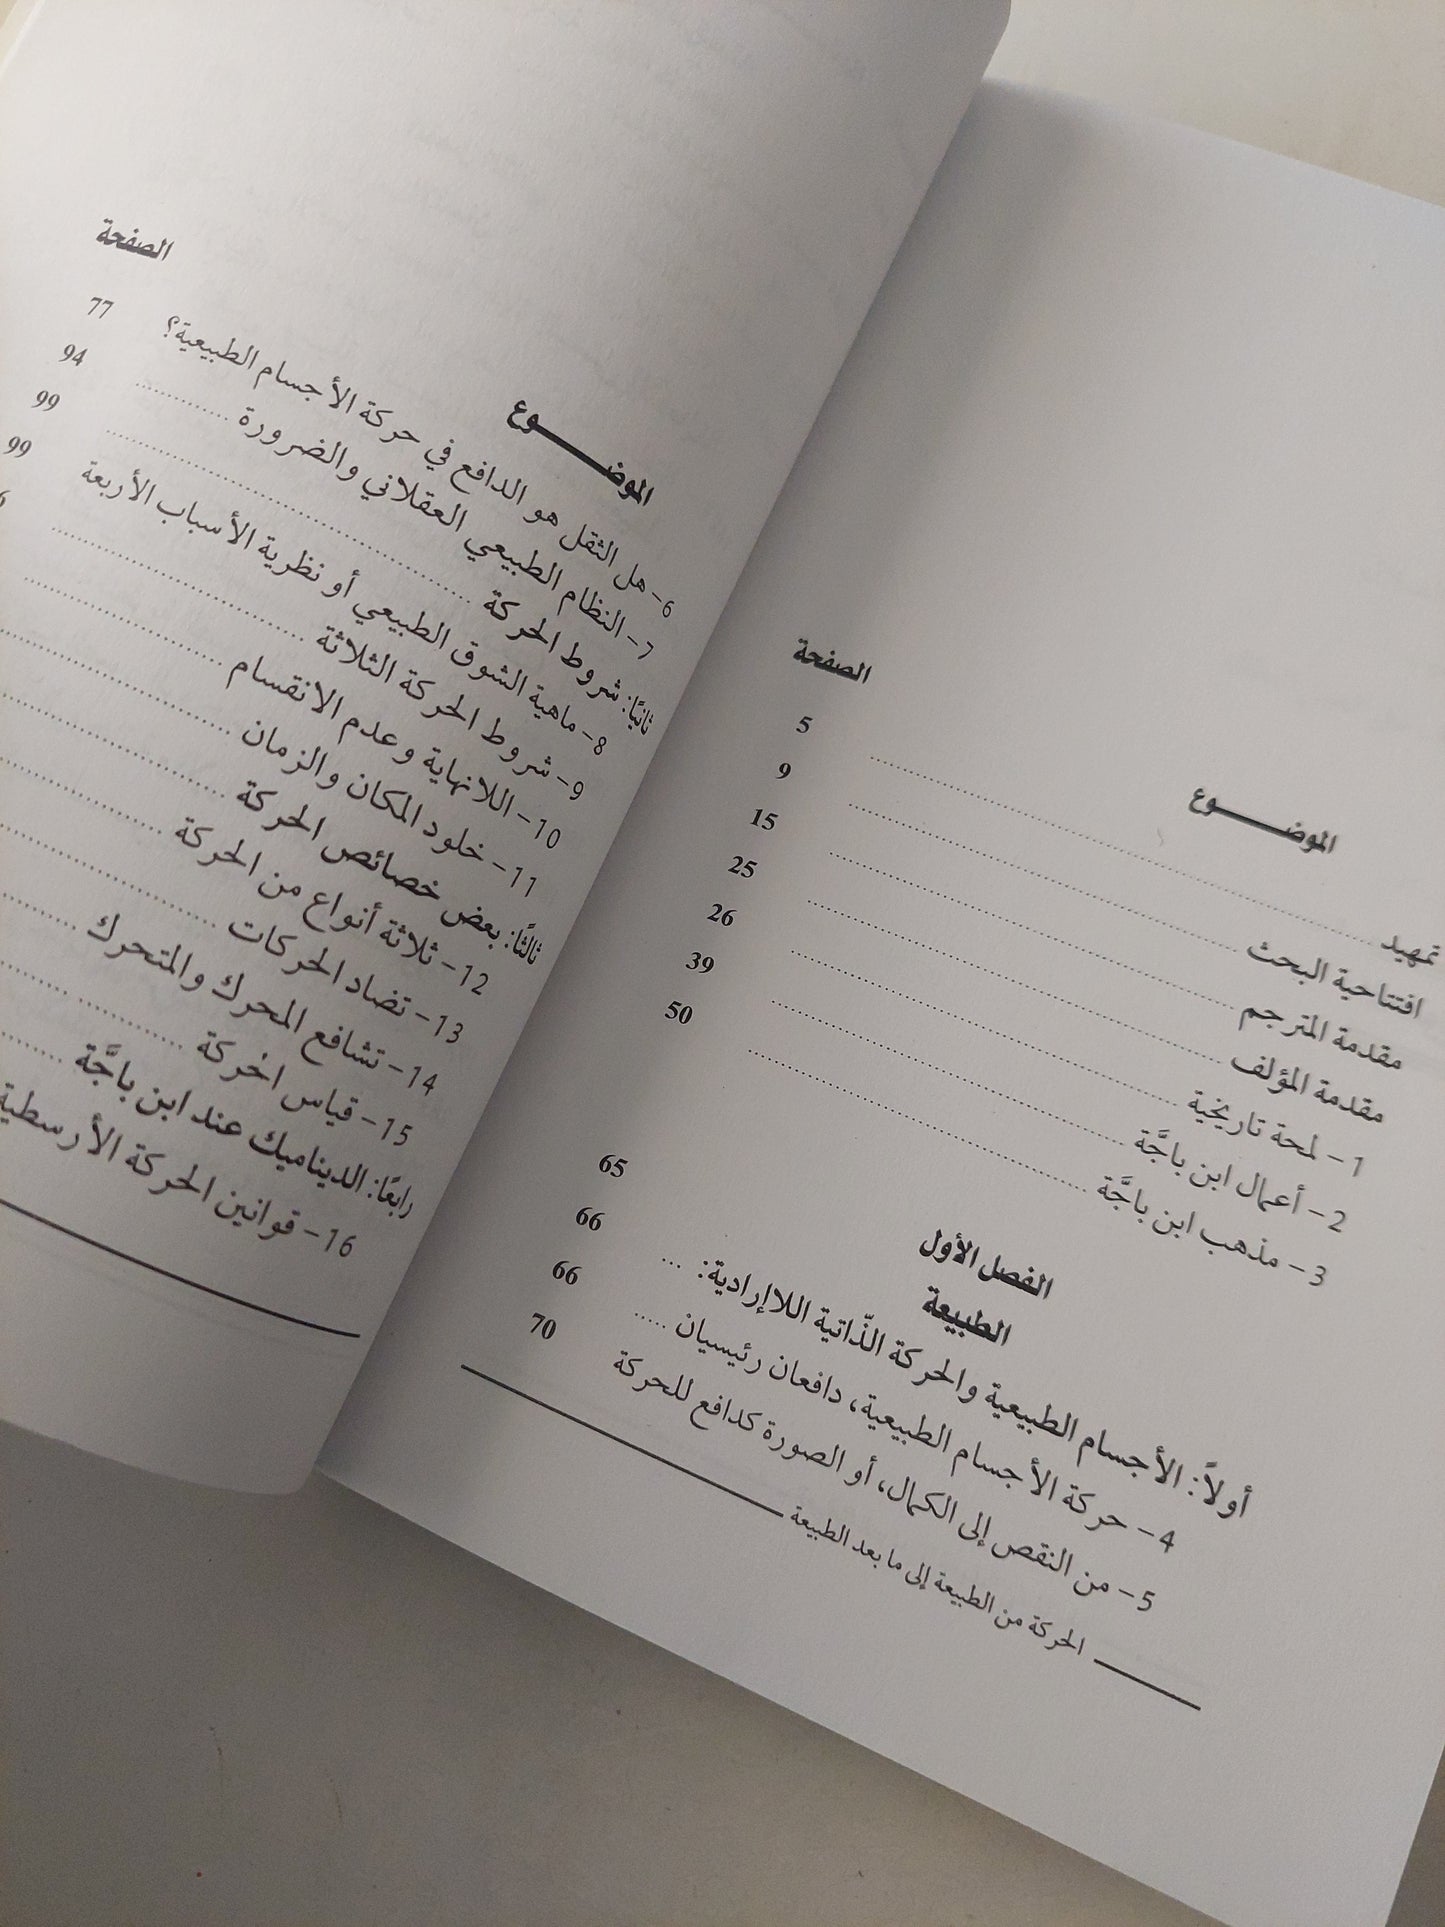 الموضـــــوع الصفحة
تمهيد ........ 5
افتتاحية البحث ........ 9
مقدمة المترجم ........ 15
مقدمة المؤلف ........ 25
1 - لمحة تاريخية ........ 26
2 - أعمال ابن باجَّة ........ 39
3 - مذهب ابن باجَّة ........ 50
الفصل الأول
الطبيعة 65
أولاً: الأجسام الطبيعية والحركة الذّاتية اللاإرادية: ... 66
4 - حركة الأجسام الطبيعية، دافعان رئيسيان ..... 66
5 - من النقص إلى الكمال، أو الصورة كدافع للحركة 70
الحركة من الطبيعة إلى ما بعد الطبيعة
الموضـــــوع الصفحة
6 - هل الثقل هو الدافع في حركة الأجسام الطبيعية؟ 77
7 - النظام الطبيعي العقلاني والضرورة ........ 94
ثانيًا: شروط الحركة ........ 99
8 - ماهية الشوق الطبيعي أو نظرية الأسباب الأربعة 99
9 - شروط الحركة الثلاثة ........
10 - اللانهاية وعدم الانقسام ........
11 - خلود المكان والزمان ........
ثالثًا: بعض خصائص الحركة ........
12 - ثلاثة أنواع من الحركة ........
13 - تضاد الحركات ........
14 - تشافع المحرك والمتحرك ........
15 - قياس الحركة ........
رابعًا: الديناميك عند ابن باجَّة ........
16 - قوانين الحركة الأرسطية